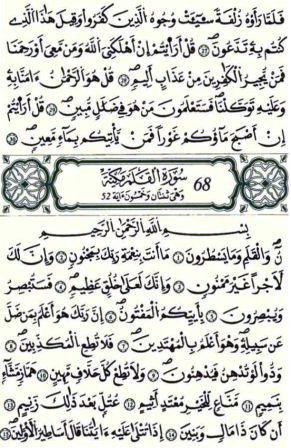 فَلَمَّا رَأَوْهُ زُلْفَةً سِيٓـَٔتْ وُجُوهُ الَّذِينَ كَفَرُوا وَقِيلَ هَٰذَا الَّذِي
كُنتُم بِهِ تَدَّعُونَ ٢٧ قُلْ أَرَأَيْتُمْ إِنْ أَهْلَكَنِيَ اللَّهُ وَمَن مَّعِيَ أَوْ رَحِمَنَا
فَمَن يُجِيرُ الْكَافِرِينَ مِنْ عَذَابٍ أَلِيمٍ ٢٨ قُلْ هُوَ الرَّحْمَٰنُ ءَامَنَّا بِهِ
وَعَلَيْهِ تَوَكَّلْنَا فَسَتَعْلَمُونَ مَنْ هُوَ فِي ضَلَالٍ مُّبِينٍ ٢٩ قُلْ أَرَأَيْتُمْ
إِنْ أَصْبَحَ مَاؤُكُمْ غَوْرًا فَمَن يَأْتِيكُم بِمَاءٍ مَّعِينٍ ٣٠
سُورَةُ الْقَلَمِ مَكِّيَّةٌ 68
وَهِيَ ثِنْتَانِ وَخَمْسُونَ ءَايَة 52
بِسْمِ اللَّهِ الرَّحْمَٰنِ الرَّحِيمِ
نٓ وَالْقَلَمِ وَمَا يَسْطُرُونَ ١ مَا أَنتَ بِنِعْمَةِ رَبِّكَ بِمَجْنُونٍ ٢ وَإِنَّ لَكَ
لَأَجْرًا غَيْرَ مَمْنُونٍ ٣ وَإِنَّكَ لَعَلَىٰ خُلُقٍ عَظِيمٍ ٤ فَسَتُبْصِرُ
وَيُبْصِرُونَ ٥ بِأَييِّكُمُ الْمَفْتُونُ ٦ إِنَّ رَبَّكَ هُوَ أَعْلَمُ بِمَن ضَلَّ
عَن سَبِيلِهِ وَهُوَ أَعْلَمُ بِالْمُهْتَدِينَ ٧ فَلَا تُطِعِ الْمُكَذِّبِينَ ٨
وَدُّوا لَوْ تُدْهِنُ فَيُدْهِنُونَ ٩ وَلَا تُطِعْ كُلَّ حَلَّافٍ مَّهِينٍ ١٠ هَمَّازٍ مَّشَّاءٍ
بِنَمِيمٍ ١١ مَّنَّاعٍ لِّلْخَيْرِ مُعْتَدٍ أَثِيمٍ ١٢ عُتُلٍّ بَعْدَ ذَٰلِكَ زَنِيمٍ ١٣
أَن كَانَ ذَا مَالٍ وَبَنِينَ ١٤ إِذَا تُتْلَىٰ عَلَيْهِ ءَايَاتُنَا قَالَ أَسَاطِيرُ الْأَوَّلِينَ ١٥